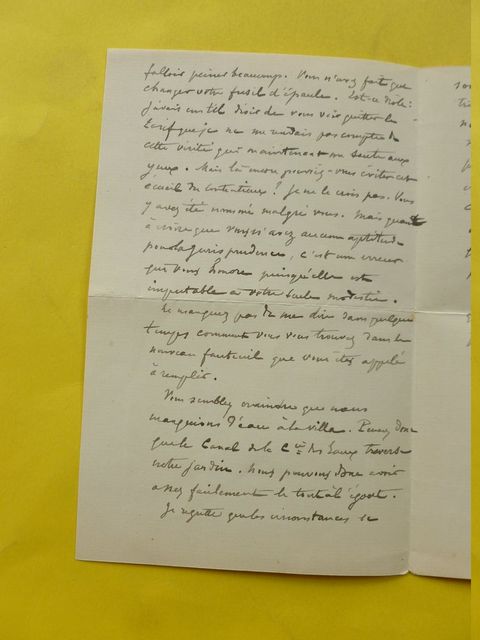 falloir peiner beaucoup. Vous n'avez fait que
changer votre fusil d'épaule. Est-ce drôle:
j'avais un tel désir de vous voir quitter le
que je ne me rendais pas compte de
cette vérité qui maintenant me saute aux
yeux. Mais là même pouviez-vous éviter cet
écueil du Contentieux? Je ne le crois pas. Vous
y avez été nommé malgré vous. Mais quant
à croire que vous n'avez aucune aptitude
pour la jurisprudence, c'est une erreur
qui vous honore puisqu'elle est
imputable à votre seule modestie.
Ne manquez pas de me dire dans quelque
temps comment vous vous trouvez dans le
nouveau fauteuil que vous êtes appelé
à remplir.
Vous semblez craindre que nous
manquions d'eau à la villa. Pensez donc
que le Canal de la Cie des Eaux traverse
notre jardin. Nous pouvons donc avoir
assez facilement le tout à l'égout.
Je regrette que les circonstances se